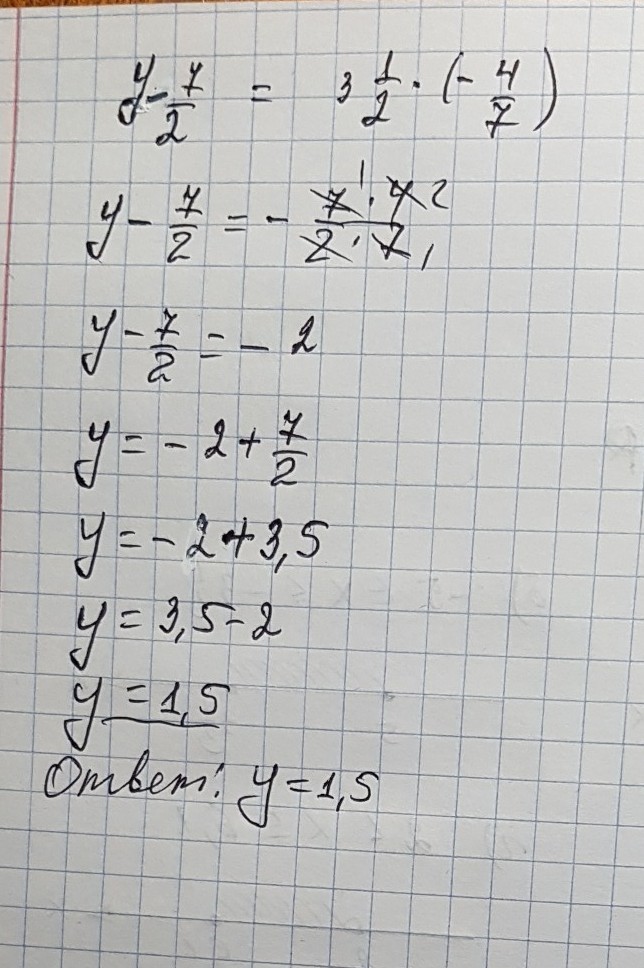 y - 7/2 = 3 1/2 · (- 4/7)
y - 7/2 = - 7 1 · 4 2 / 2 · 7 1
y - 7/2 = - 2
y = - 2 + 7/2
y = - 2 + 3,5
y = 3,5 - 2
y = 1,5
Ответ: y = 1,5